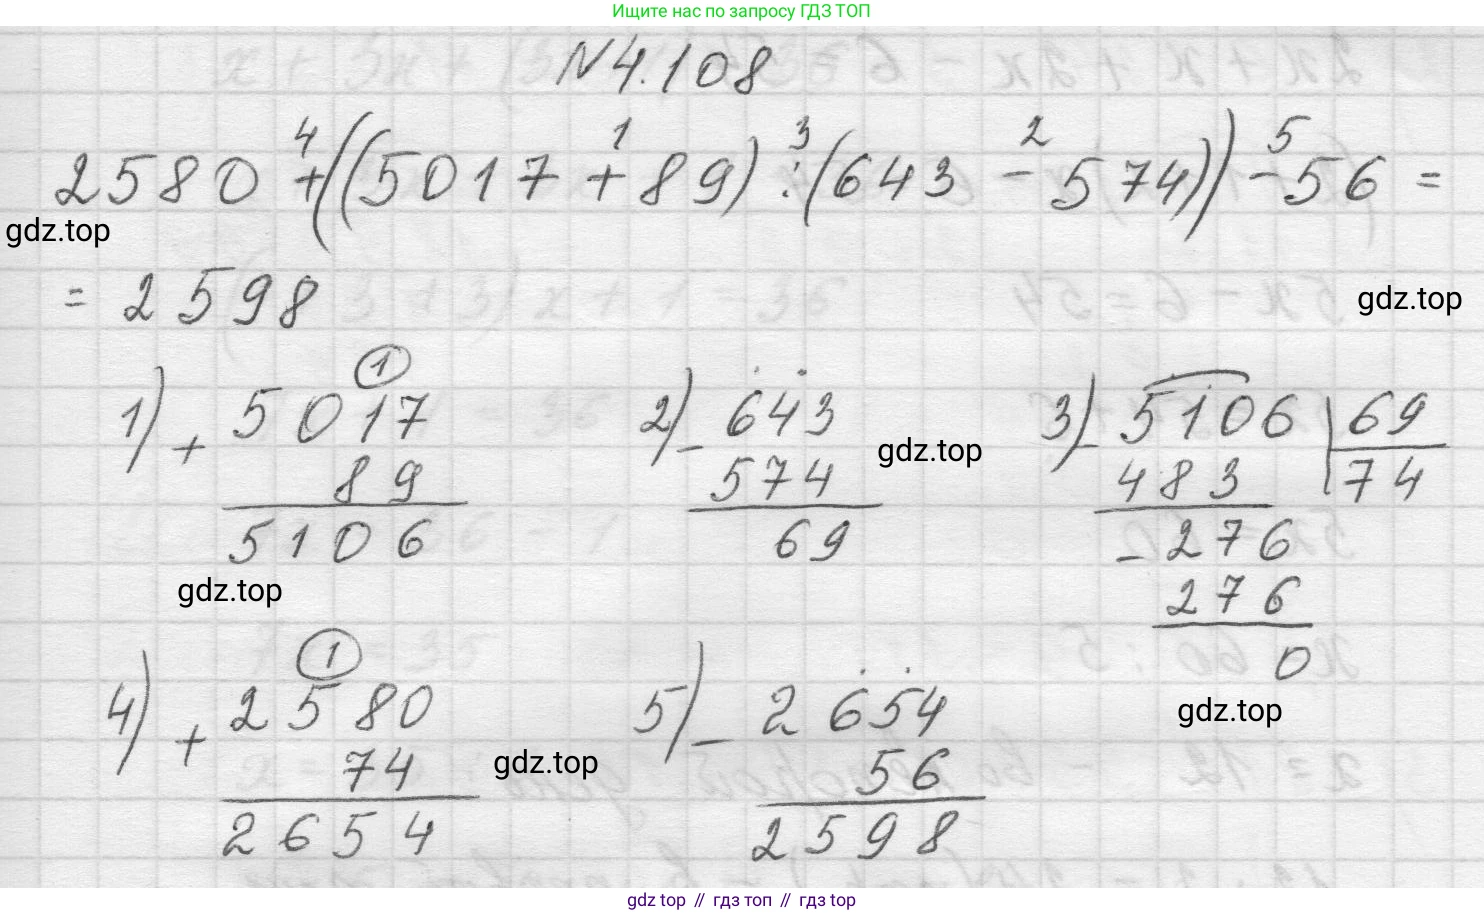 Ищите нас по запросу ГДЗ ТОП
N4.108
4 1 3 2 5
2580 + ((5017 + 89) : (643 - 574)) - 56 =
gdz.top
= 2598
gdz.top
1) + 5017
1
89
5106
2) - 643
574
69
gdz.top
3) - 5106 | 69
483 74
- 276
276
0
gdz.top
gdz.top
4) + 2580
1
74
2654
gdz.top
5) - 2654
56
2598
gdz top // гдз топ // гдз top